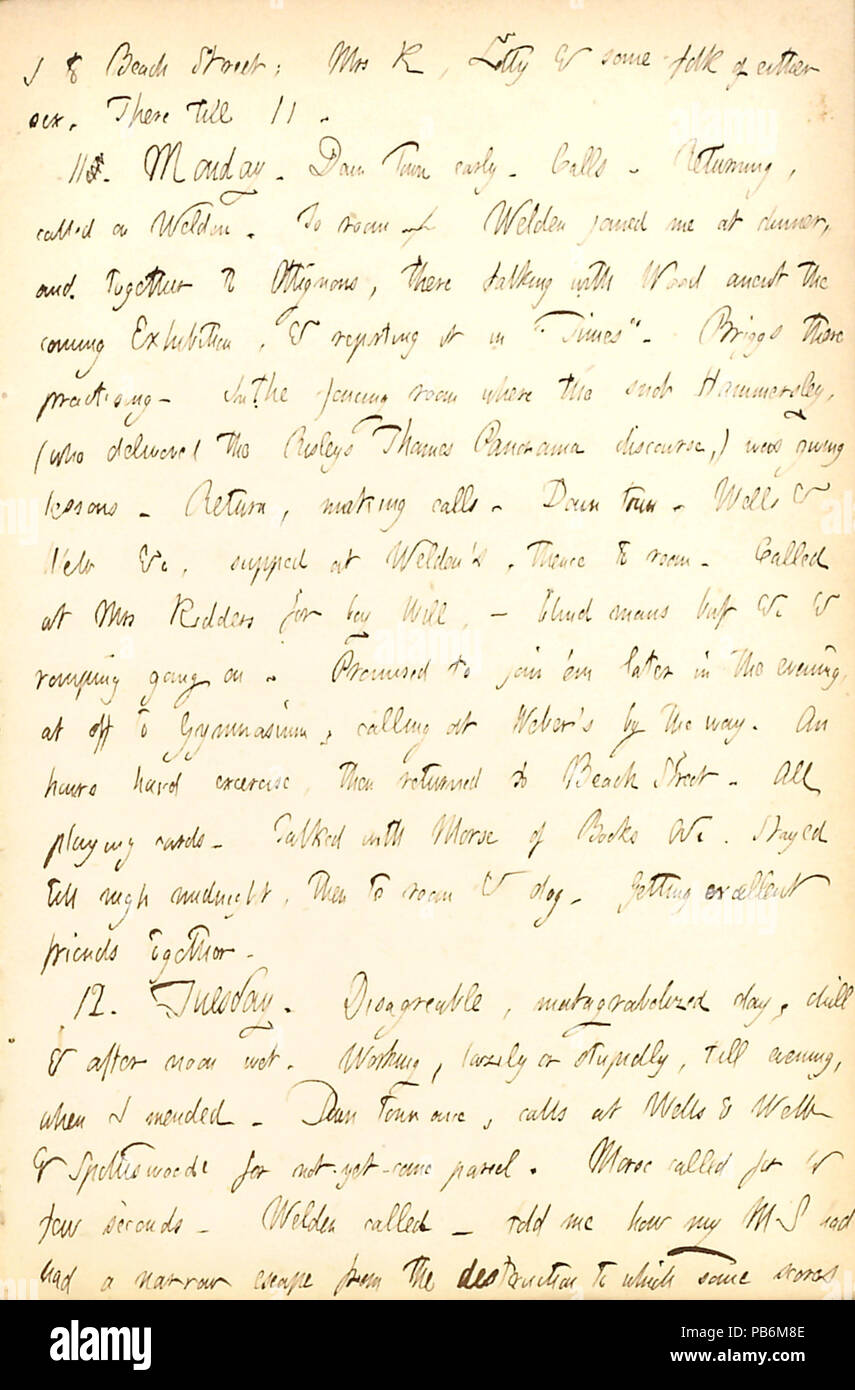 I to Beach Street; Mrs K, Lotty & some folk of either
sex. There till 11.
11. Monday. Down Town early. Calls. Returning,
called on Welden. To room. Welden joined me at dinner,
and together to Ottignons, there talking with Wood anent the
coming Exhibition, & reporting it in "Times". Briggs there
practising. In the fencing room where the snob Hammersley,
(who delivered the Risleys Thames Panorama discourse,) was giving
lessons. Return, making calls. Down town. Wells &
Webb &c, supped at Welden's, thence to room. Called
at Mrs Kidders for boy Will, — blind mans buff &c &
romping going on. Promised to join 'em later in the evening,
at off to Gymnasium, calling at Weber's by the way. An
hours hard exercise, then returned to Beach Street. All
playing cards. Talked with Morse of Books &c. Stayed
till nigh midnight, then to room & dog. Jotting excellent
friends together.
12. Tuesday. Disagreable, matagrabolized day, chill
& after noon wet. Working, lazily or stupidly, till evening,
when I mended. Down town once, calls at Wells & Webb
& Spottiswoode for not-yet-come parcel. Morse called for a
few seconds. Welden called — told me how my M.S had
had a narrow escape from the destruction to which some scores
alamy
Image ID: PB6M8E
www.alamy.com